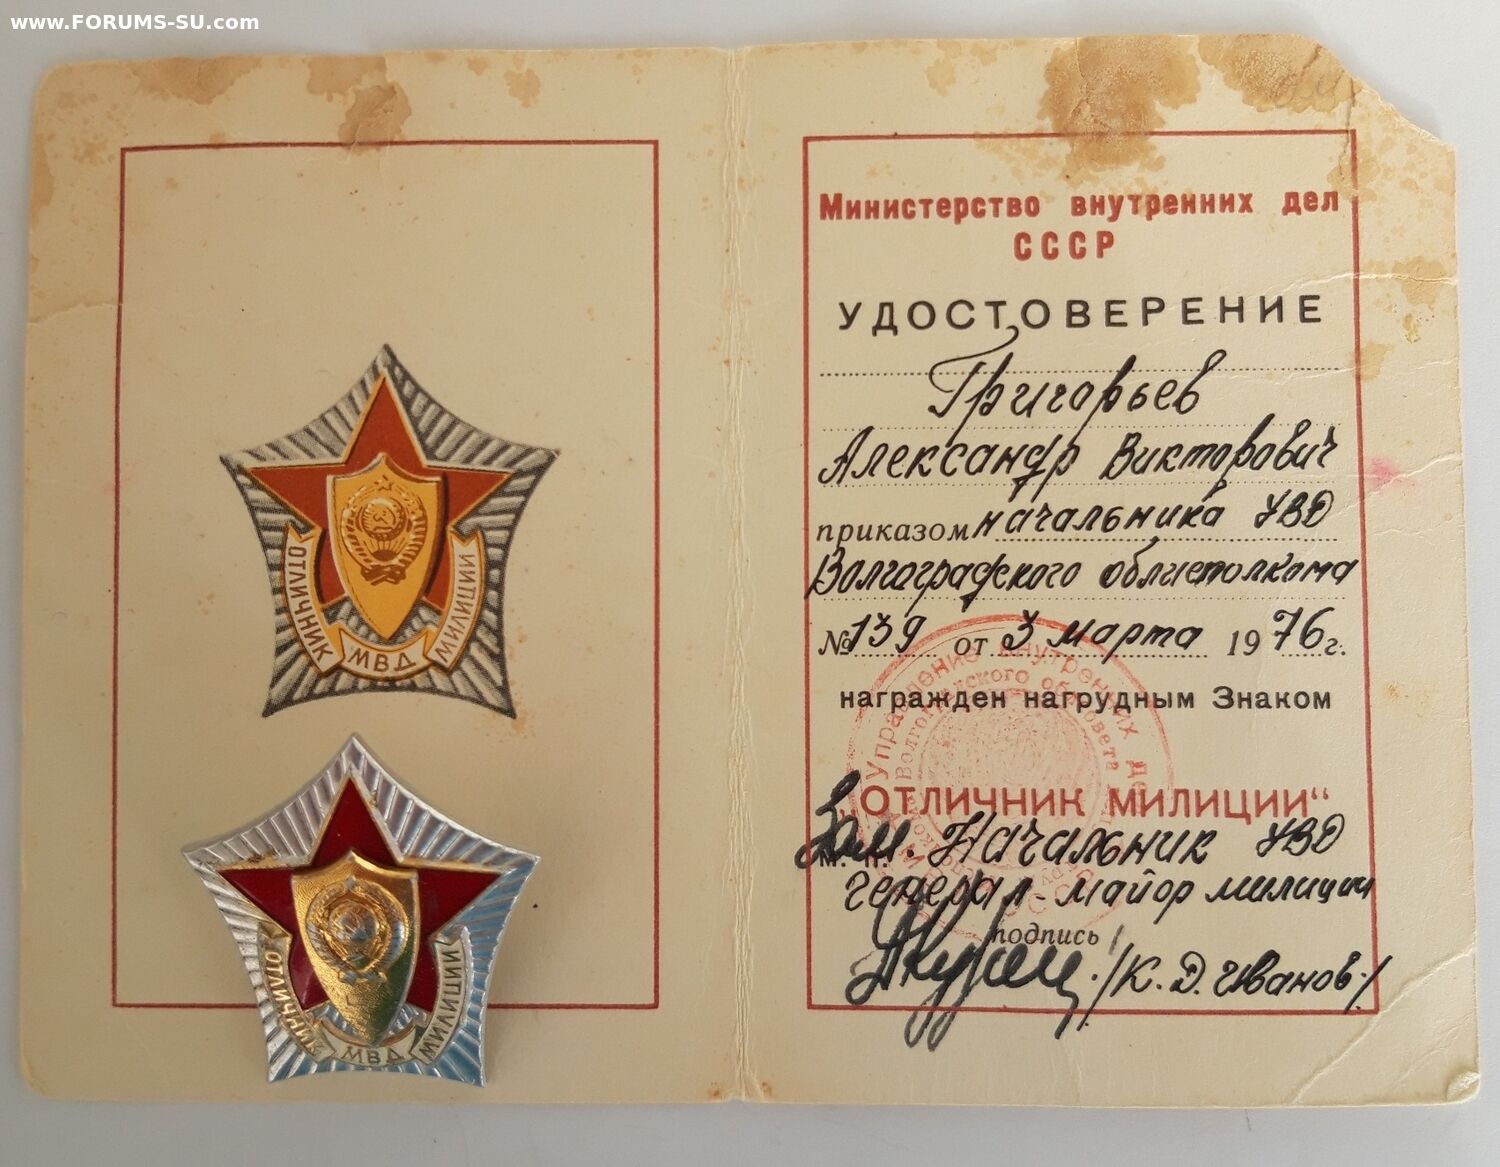 www.FORUMS-SU.com
ОТЛИЧНИК
МВД
МИЛИЦИИ
ОТЛИЧНИК
МВД
МИЛИЦИИ
Министерство внутренних дел
СССР
УДОСТОВЕРЕНИЕ
Григорьев
Александр Викторович
приказом начальника УВД
Волгоградского облисполкома
№ 139 от 3 марта 1976 г.
награжден нагрудным Знаком
„ОТЛИЧНИК МИЛИЦИИ“
Зам. Начальник УВД
м. п.
генерал-майор милиции
подпись
/К. Д. Иванов/
Управление внутренних дел